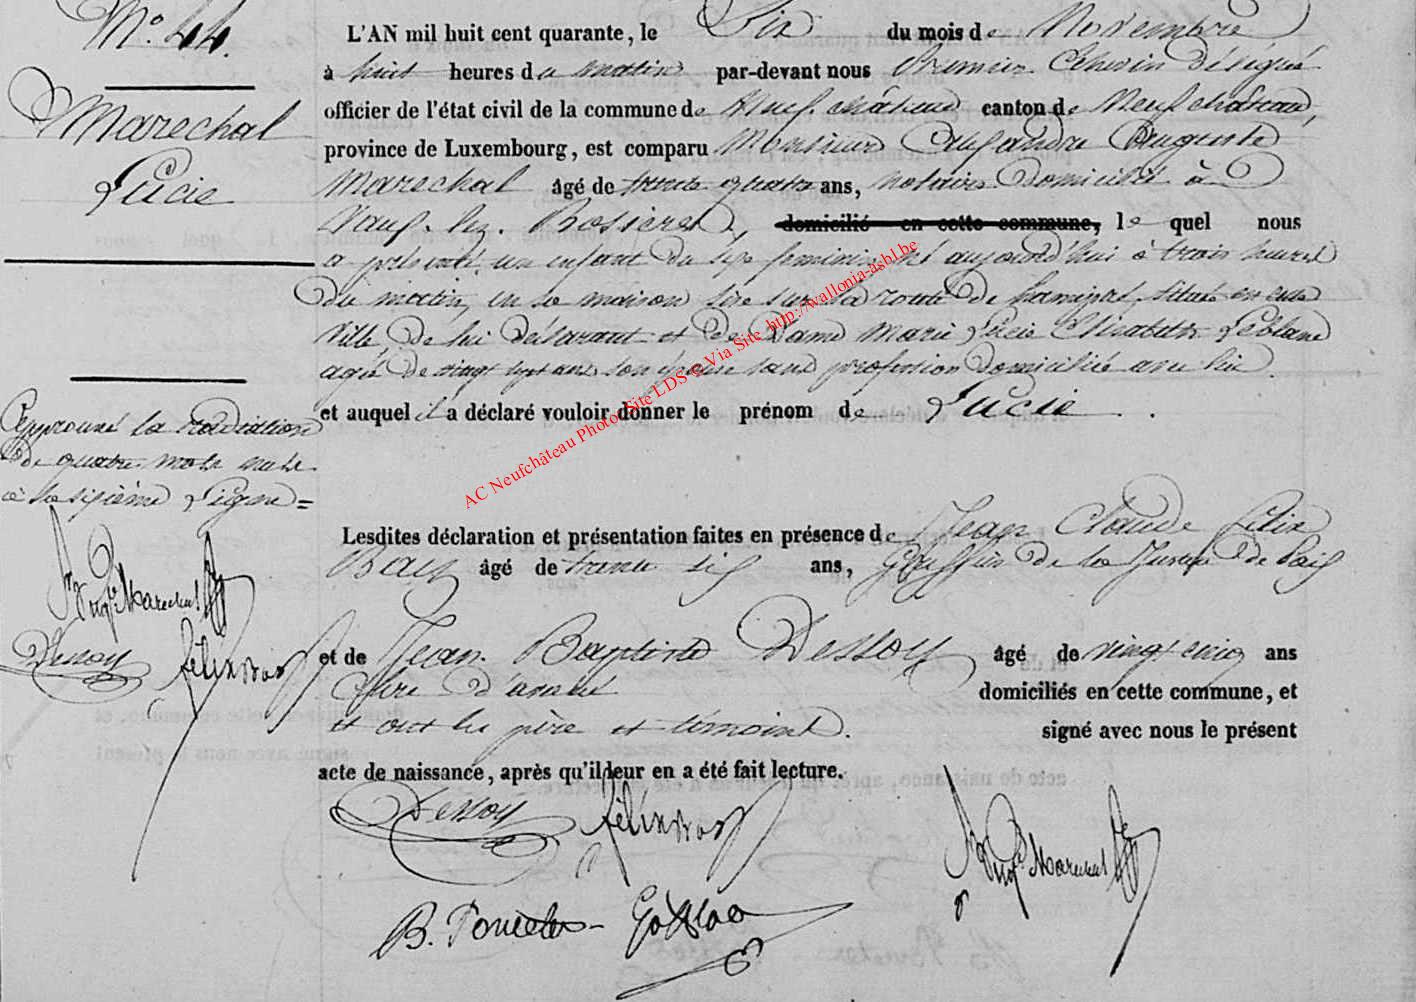 N° 44.
Marechal
Lucie
Approuvé la radiation
de quatre mots nuls
à la sixième Ligne =
Aug.te Marechal
Dessoy félix
L'AN mil huit cent quarante, le Six du mois de Novembre
à huit heures du matin par-devant nous Premier Echevin délégué
officier de l'état civil de la commune de Neufchâteau canton de Neufchateau,
province de Luxembourg, est comparu Monsieur Auguste
Marechal âgé de trente quatre ans, notaire domicilié à
Vaux-lez-Rosieres, domicilié en cette commune, le quel nous
a présenté un enfant du sexe féminin né aujourd'hui à trois heures
du matin, en sa maison sise sur la route de située en cette
Ville de lui déclarant et de Dame Marie Lucie Elisabeth Leblanc
agée de vingt sept ans son épouse sans profession domiciliée avec lui
et auquel il a déclaré vouloir donner le prénom de Lucie.
Lesdites déclaration et présentation faites en présence de Jean Claude Félix
âgé de trente six ans, Greffier de la Justice de Paix
et de Jean Baptiste Dessoy âgé de vingt cinq ans
domiciliés en cette commune, et
et ont les père et témoins. signé avec nous le présent
acte de naissance, après qu'il leur en a été fait lecture.
Dessoy félix Aug.te Marechal
B.
AC Neufchâteau Photo Site LDS © Via Site http://wallonia-asbl.be